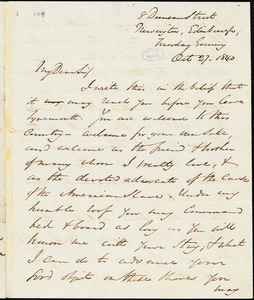 8 Duncan Street
Newington, Edinburgh;
Tuesday Evening
Oct 27. 1840
My Dear Sir/
I write this in the belief that
it may reach you before you leave
Tynemouth. You are welcome to this
Country - welcome for your own sake,
and welcome as the friend & brother
of many whom I greatly love, &
as the devoted advocate of the cause
of the American Slave. Under my
humble roof you may command
bed & board as long as you will
honor me with your stay; & what
I can do to advance your
good object on these shores you
may